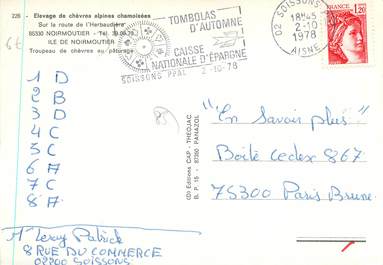 226 - Elevage de chèvres alpines chamoisées
Sur la route de l'Herbaudière
85330 NOIRMOUTIER - Tél.
ILE DE NOIRMOUTIER
Troupeau de chèvres au pâturage
TOMBOLAS
D'AUTOMNE
CAISSE
NATIONALE D'ÉPARGNE
SOISSONS PPAL 2-10-78
02 SOISSONS
18H45
2-10
1978
AISNE
FRANCE
1,20
1 D
2 B
3 D
4 C
5 C
6 A
7 C
8 A
Mr Leroy Patrick
8 RUE DU COMMERCE
02200 SOISSONS
(D) Editions CAP - THEOJAC
B. P. 15 - 87350 PANAZOL
"En Savoir plus"
Boîte Cedex 867
75300 Paris Brune.